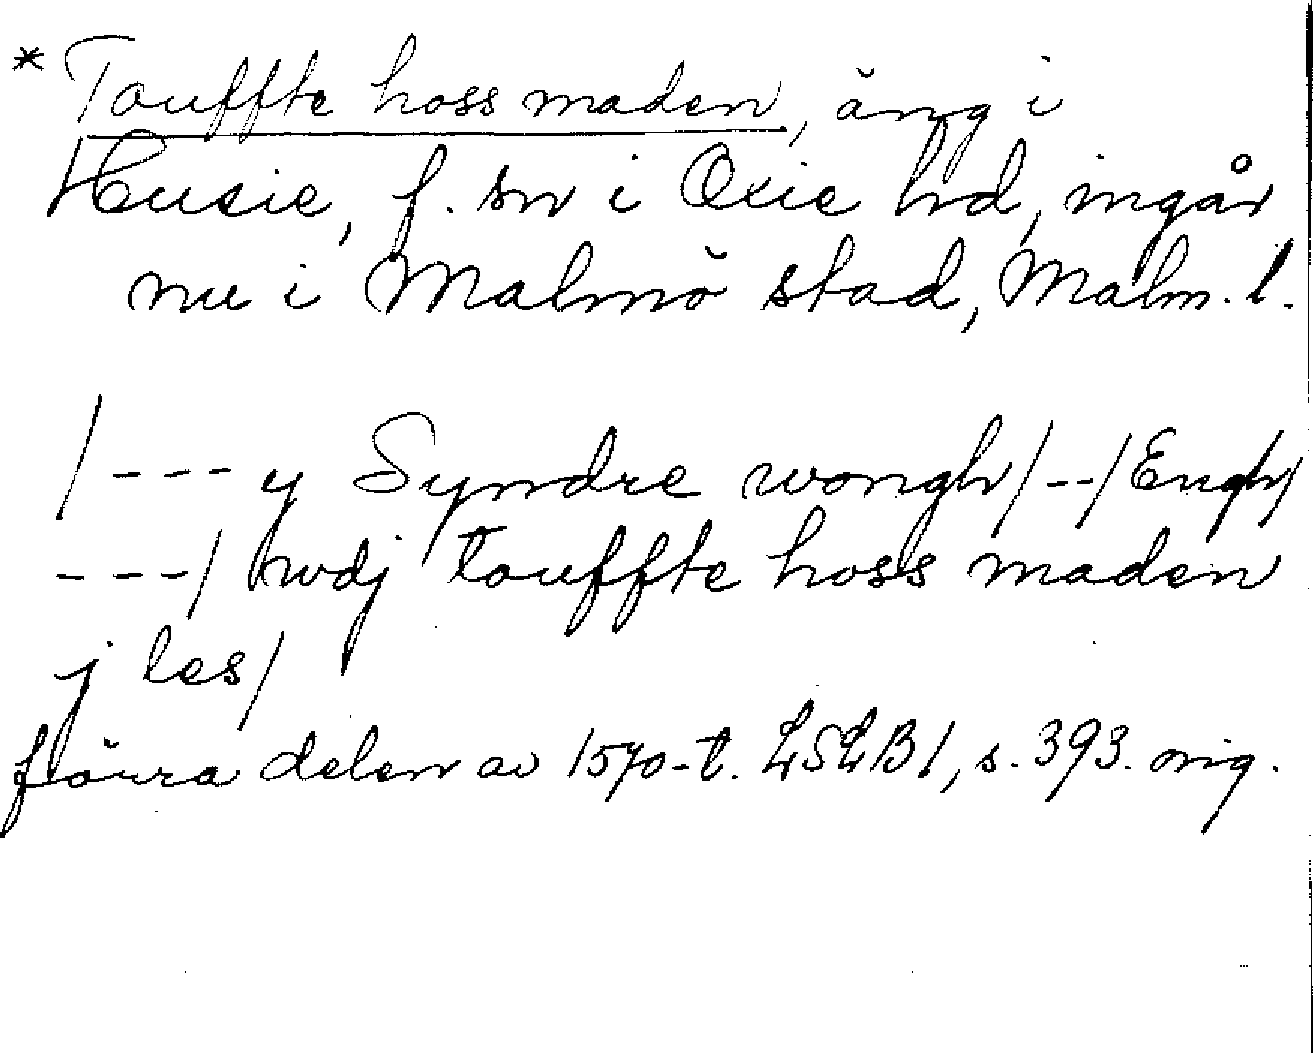 * Touffte hoss maden, äng i
Husie, f. sn i Oxie hd, ingår
nu i Malmö stad, Malm. l.
/--- y Syndre wongh/--/Engh/
---/ hwdj touffte hoss maden
j les/
förra delen av 1570-t. LSLB1, s. 393. orig.